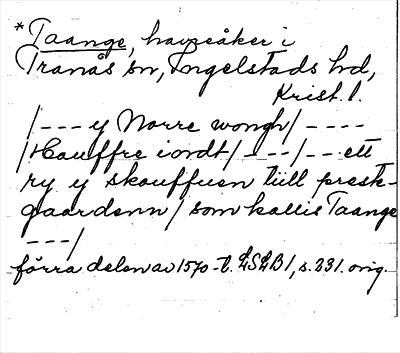 *Taange, havreåker i
Tranås sn, Ingelstads hd,
Krist. l.
/--- y Norre wongh/----
/Hauffre iordt/---/---ett
ry y skouffuen tiill prest-
gaardenn/som kallis Taange
---/
förra delen av 1570-t. LSLB 1, s. 231. orig.